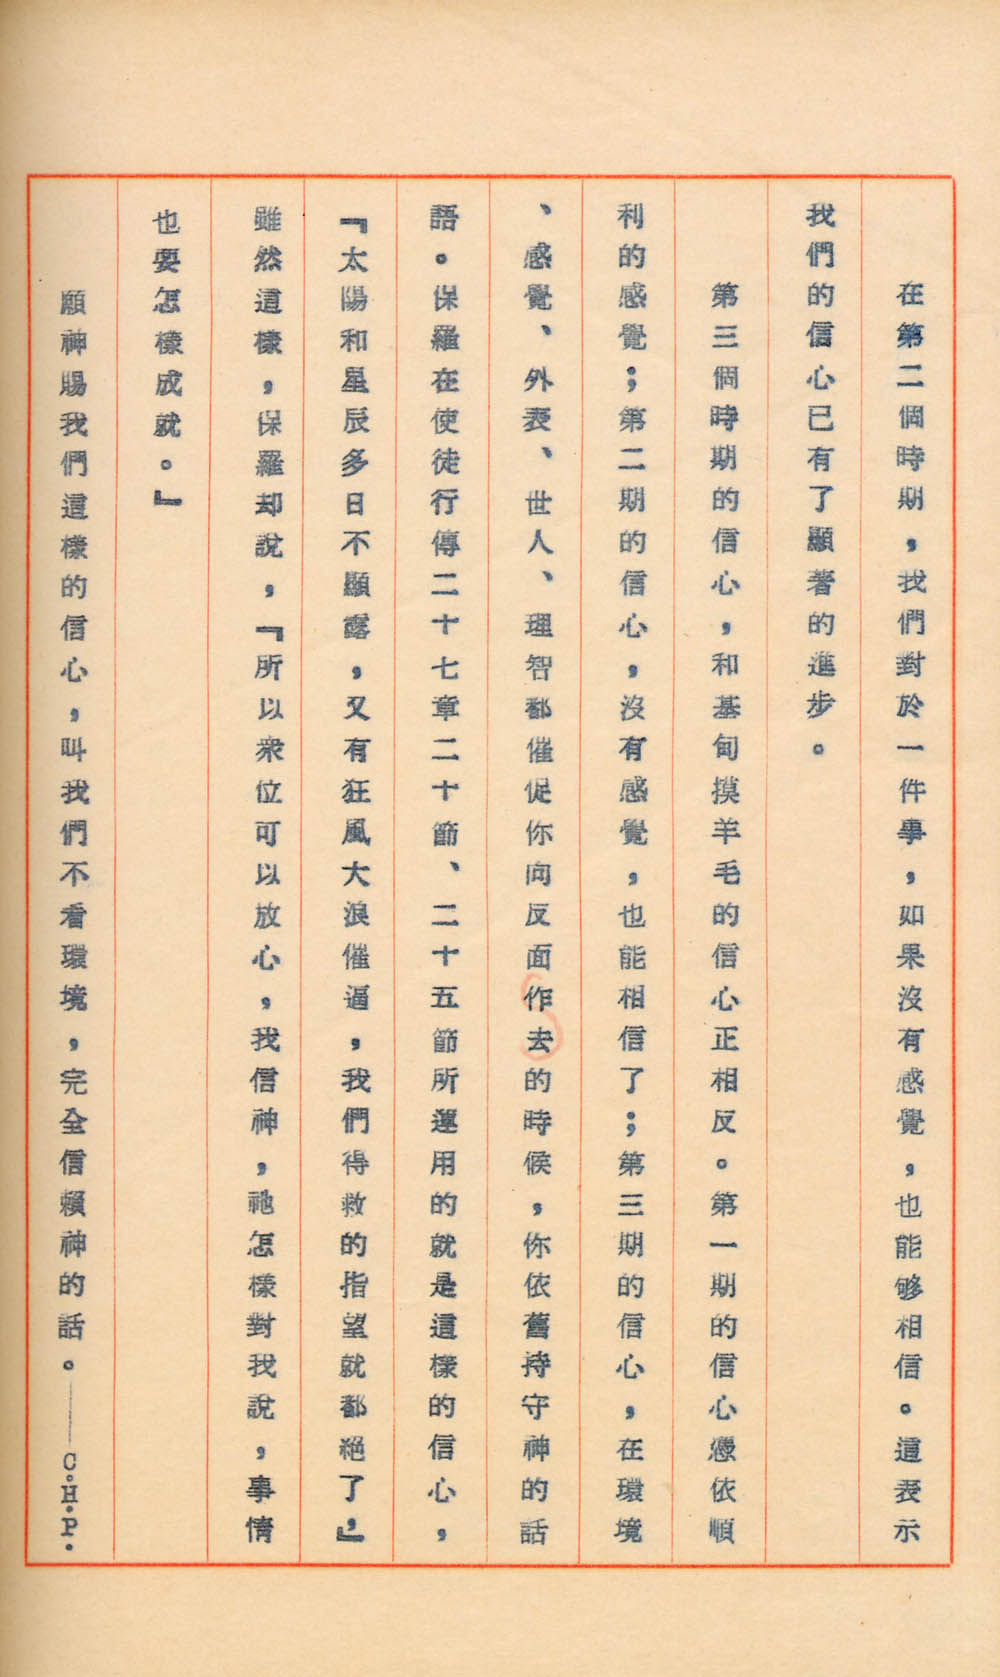 在第二個時期，我們對於一件事，如果沒有感覺，也能够相信。這表示
我們的信心已有了顯著的進步。
第三個時期的信心，和基甸摸羊毛的信心正相反。第一期的信心憑依順
利的感覺；第二期的信心，沒有感覺，也能相信了；第三期的信心，在環境
、感覺、外表、世人、理智都催促你向反面作去的時候，你依舊持守神的話
語。保羅在使徒行傳二十七章二十節、二十五節所運用的就是這樣的信心，
『太陽和星辰多日不顯露，又有狂風大浪催逼，我們得救的指望就都絕了，』
雖然這樣，保羅却說，『所以衆位可以放心，我信神，祂怎樣對我說，事情
也要怎樣成就。』
願神賜我們這樣的信心，叫我們不看環境，完全信賴神的話。——C.H.P.